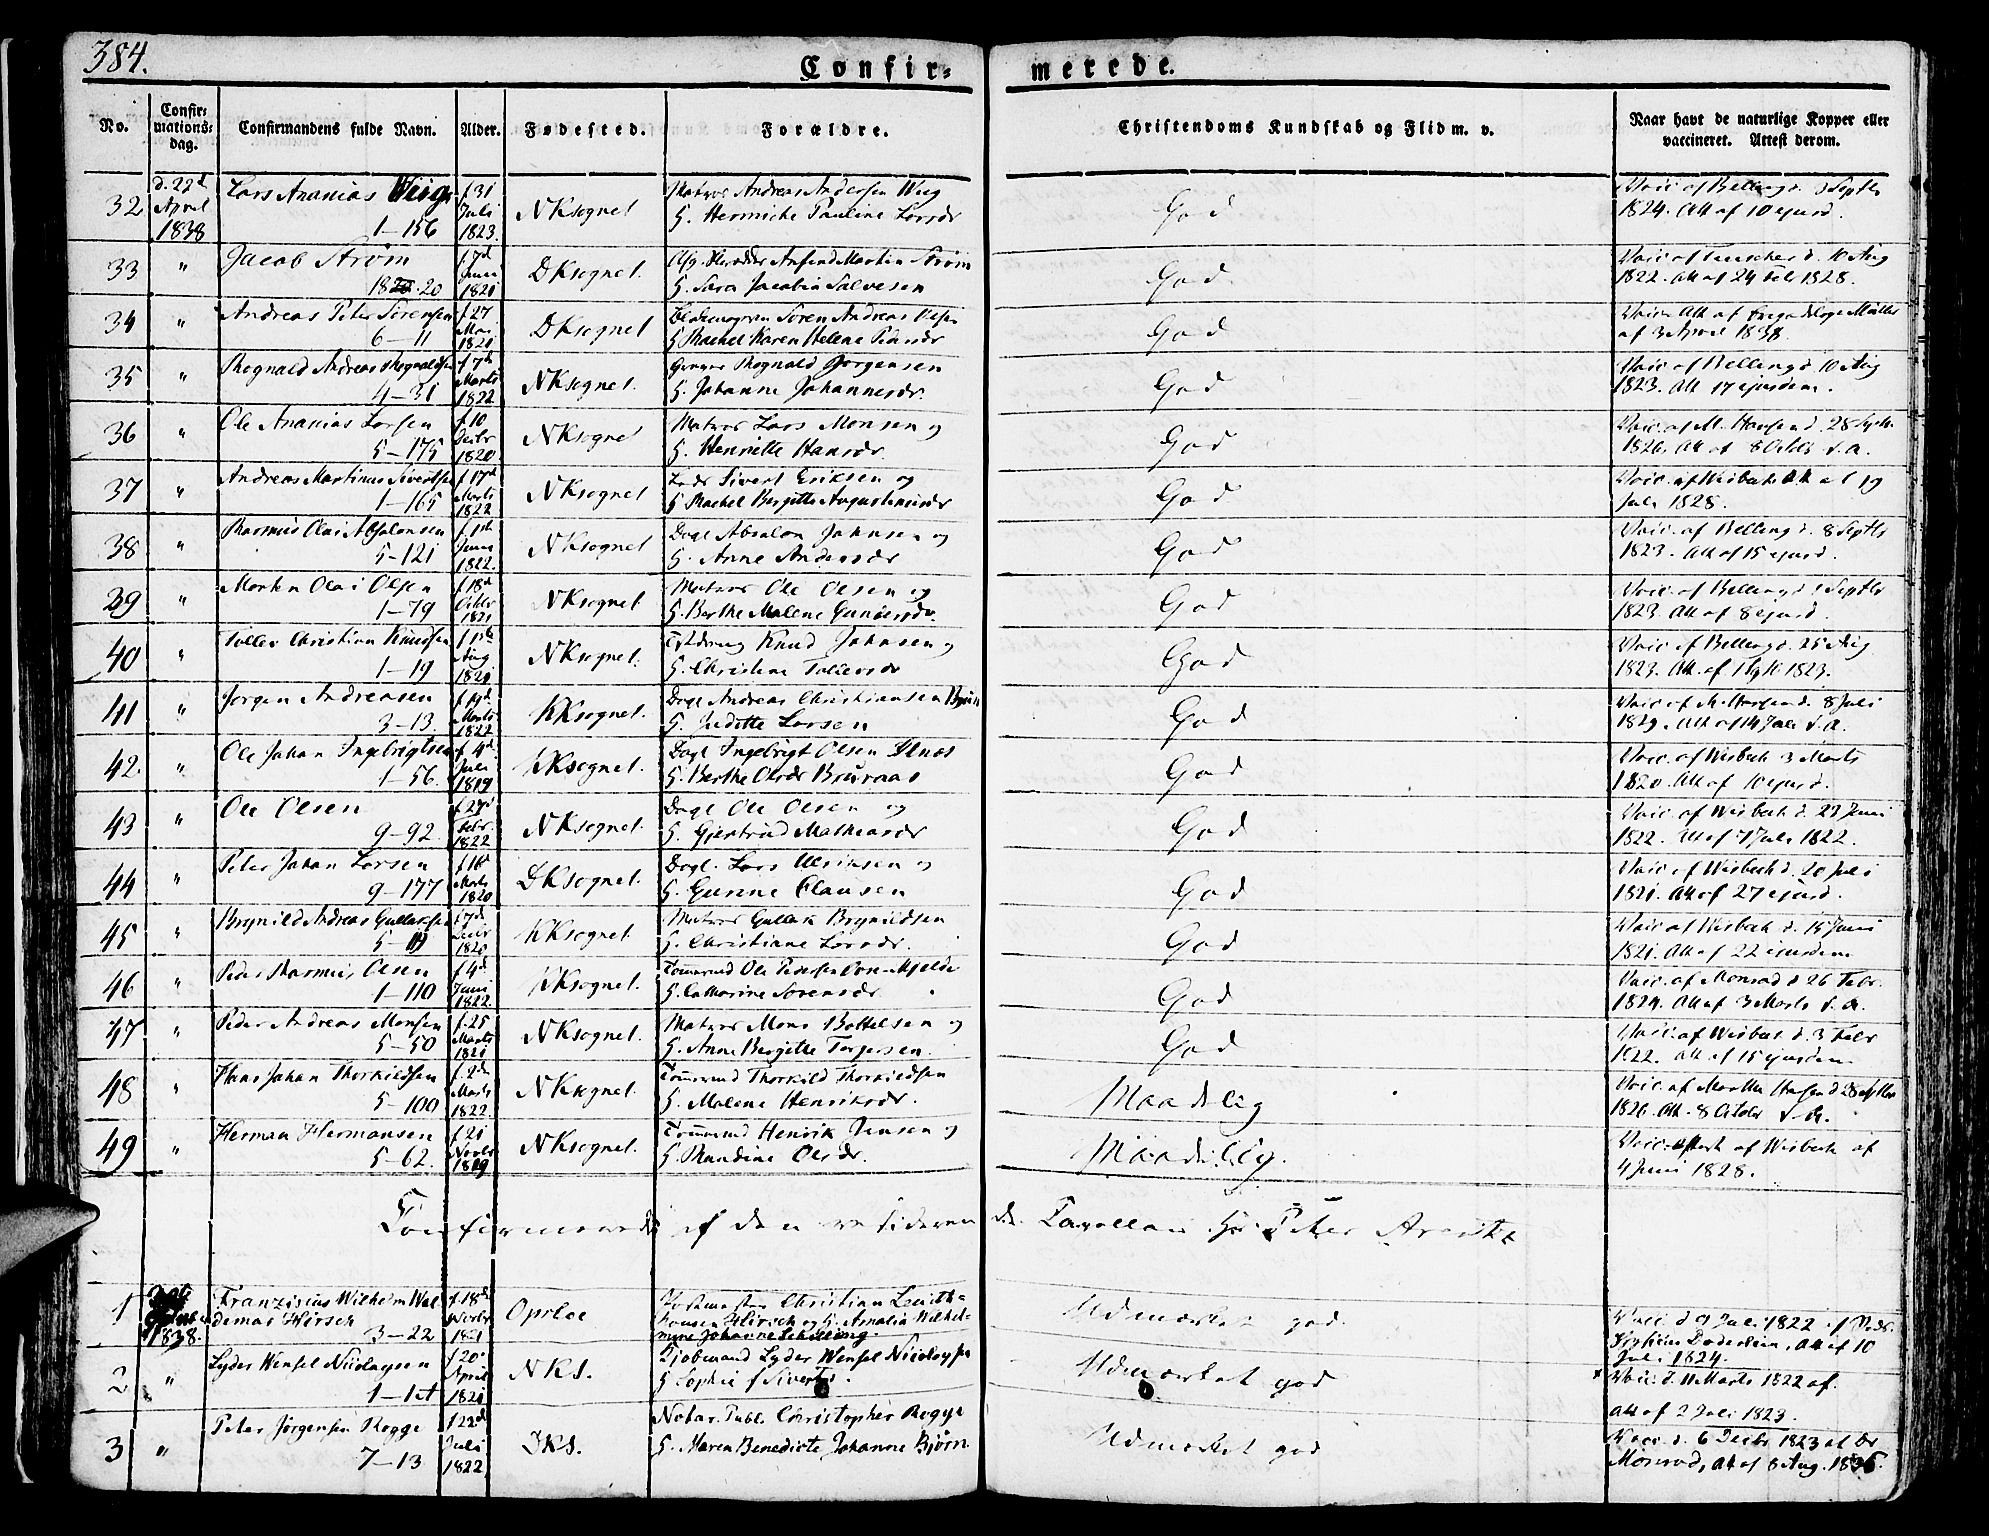 384.
Confir-
merede.
No.
Confir-
mations-
dag.
Confirmandens fulde Navn.
Alder.
Fødested.
Forældre.
Christendoms Kundskab og Flid m. v.
Naar havt de naturlige Kopper eller
vaccineret. Attest derom.
32 d. 22d April 1838 Lars Ananias Wiig 1-156 f. 31 Juli 1823. NKsognet Matros Andreas Andersen Wiig G. Hermiche Pauline Larsdr God Vacc. af Belling d. Septbr 1824. Att af 10 ejusd.
33 " Jacob Strøm 20 f. 7d Juni 1821 DKsognet. Martin Strøm G. Sara Jacobia Salvesen God Vacc. af d. 10 Aug 1822. Att af 24 1828.
34 " Andreas Peter Sørensen 6-11 f. 27 Mai 1821 DKsognet Søren Andreas G. Rachel Karen Helene God Vacc. Att af Müller af 3 April 1838.
35 " Rognald Andreas Rognaldsen 4-31 f. 7d Marts 1822 NKsognet. Rognald Jørgensen G. Johanne Johannesdr. God Vacc. af Belling d 10 Aug 1823. Att 17 ejusdem.
36 " Ole Ananias Larsen 5-175 f. 10 Decbr 1820 NKsognet Matros Lars Monsen og G. Henriette Hansdr. God Vacc. af M. Hansen d. 28 Septbr. 1826. Att af 8 Octbr s. a.
37 " Andreas Martinus Sivertsen 1-165 f. 17d Marts 1822 NKsognet Sivert Eriksen og G. Rachel Bergitte Augustinusdr God Vacc. af Wisbech Att af 19 Juli 1828.
38 " Rasmus Olai Absalonsen 5-121 f. 1st Juni 1822. NKsognet Dagl Absalon Johnsen og G. Anne Andersdr God Vacc. af Belling d. 8 Septbr 1823. Att af 15 ejusd.
39 " Morten Olai Olsen 1-79 f. 18d Octbr 1821 NKsognet. Matros Ole Olsen og G. Berthe Malene Gundersdr. God Vacc. af Belling d Septbr 1823. Att af 8 ejusd.
40 " Tollev Christian Knudsen 1-19 f. 1st Aug 1821 NKsognet. Knud Johnsen og G. Christine Tollevsdr God Vacc. af Belling d. 25 Aug 1823. Att. af 1823.
41 " Jørgen Andreasen 3-13. f. 19d Marts 1822 KKsognet. Dagl Andreas Christiansen G. Judithe Larsen God Vacc. af M. Hansen d. 8 Juli 1829. Att af 14 Juli s. a.
42. " Ole Johan Ingebrigtsen 1-56. f. 4d Juli 1819 KKsognet. Dagl Ingebrigt Olsen G. Berthe Olsdr Bruraas God Vacc. af Wisbech 3 Marts 1820. Att af 10 ejusd.
43 " Ole Olsen 9-92 f. 27d Febr. 1822 NKsognet. Dagl Ole Olsen og G. Gjertrud Mathiasdr God Vacc. af Wisbech d. 27 Juni 1822. Att af 7 Juli 1822.
44 " Peter Johan Larsen 9-177 f. 16d Marts 1820 DKsognet. Dagl. Lars Ulriksen og G. Gurine Clausen God Vacc. af Wisbech d. 20 Juli 1821. Att af 27 ejusd.
45 " Brynild Andreas Gullaksen 5- f. 7de Decbr 1820 KKsognet. Matros Gullak Brynildsen G. Christiane Larsdr. God Vacc af Wisbech d. 15 Juni 1821. Att af 22 ejusdem
46 " Peder Rasmus Olsen 1-110 f. 4d. Juni 1822. KKsognet. Tømmermd Ole Pedersen G. Cathrine Sørensdr God Vacc. af Monrad d 26 Febr. 1824. Att af 3 Marts s. a.
47 " Peder Andreas Monsen 5-50 f. 25 Marts 1821 NKsognet. Matros Mons Bottelsen og G. Anne Bergitte Torgersen. God Vacc. af Wisbech d. 3 Febr 1822. Att af 15 ejusdem
48 " Hans Johan Thorkildsen 5-100 f. 2d Marts 1822. NKsognet. Tømmermd Thorkild Thorkildsen G. Malene Henriksdr. Maadelig Vacc. af Marthe Hansen d 28 Septbr 1826. Att. 8 Octbr s. a.
49 " Herman Hermansen 5-62. f. 21 Novbr 1819 NKsognet. Tømmermd Henrik Jensen og G. Randine Olsdr. Maadelig. Vacc. attest af Wisbech af 4 Juni 1828.
Confirmerede af den residerende Capellan Hr Peter Arentz
1 1838. Franziscus Wilhelm Waldemar Hirsch 3-22 f. 18d Novbr 1821 Christian Hirsch og G. Amalia Wilhelmine Johanne Schilling. Udmærket god. Vacc. d 9 Juli 1822 af Att af 10 Juli 1824.
2 " Lyder Wensel Nicolaysen f. 20 April 1821 NKS. Kjøbmand Lyder Wensel Nicolaysen G Sophie f Sivertz. Udmærket god Vacc. d. 11 Marts 1822 af. att af 2 Juli 1823.
3 " Peter Jørgensen Rogge 7-13 f 22d Juli 1822 DKS. Notar. Publ. Christopher Rogge G. Maren Benedicte Johanne Bjørn Udmærket god Vacc. d. 6 Decbr 1823 af Dr Monrad, Att af 8 Aug. 1836.